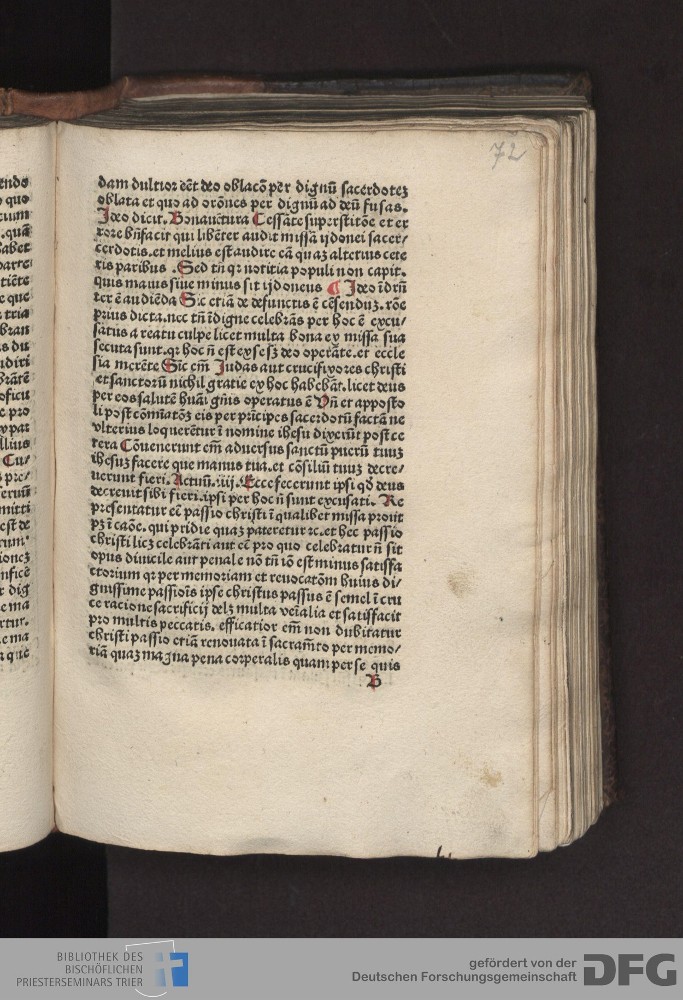 72
dam dultior dēt deo oblacō per dignū sacerdotez
oblata et quo ad orōnes per dignū ad deū fusas.
Ideo dicit. Bonauētura Cessāte superstitōe et er
rore bn̄facit qui libēter audit missā ijdonei sacer/
cerdotis. et melius est audire eā quaz alterius cete
ris paribus . Sed tn̄ qr noticia populi non capit.
quis maius siue minus sit ijdoneus ¶ Ideo īdrn̄
ter ē audiēda Sic etiā de defunctis ē cēsenduz. rōe
prius dicta. nec tn̄ īdigne celebrās per hoc ē excu/
satus a reatu culpe licet multa bona ex missa sua
secuta sunt. qr hoc n̄ est ex se sz deo operāte. et eccle
sia merēte Sic em̄ Judas aut crucifixores christi
et sanctorū nichil gratie ex hoc habebāt. licet deus
per eos salutē huāi gn̄is operatus ē Vn̄ et apposto
li post cōmiatōz eis per prīcipes sacerdotū factā ne
vlterius loquerētur ī nomine ihesu dixerūt post ce
tera Cōuenerunt em̄ aduersus sanctū puerū tuuz
ihesuz facere que manus tua. et cōsiliū tuuz decre/
uerunt fieri. Actuū. iiij. Ecce fecerunt ipsi qd deus
decreuit sibi fieri. ipsi per hoc n̄ sunt excusati. Re
presentatur eī passio christi ī qualibet missa prout
pz ī caōe. qui pridie quaz pateretur rc. et hec passio
christi licz celebrāti aut eī pro quo celebratur n̄ sit
opus diuicile aut penale nō tn̄ iō est minus satisfa
ctorium qr per memoriam et reuocatōm huius di/
gnissime passiōis ipse christus passus ē semel ī cru
ce racione sacrificij delz multa veīalia et satisfacit
pro multis peccatis. efficatior em̄ non dubitatur
christi passio etiā renouata ī sacram̄to per memo/
riā quaz magna pena corperalis quam per se quis
B
BIBLIOTHEK DES
BISCHÖFLICHEN
PRIESTERSEMINARS TRIER
gefördert von der
Deutschen Forschungsgemeinschaft
DFG